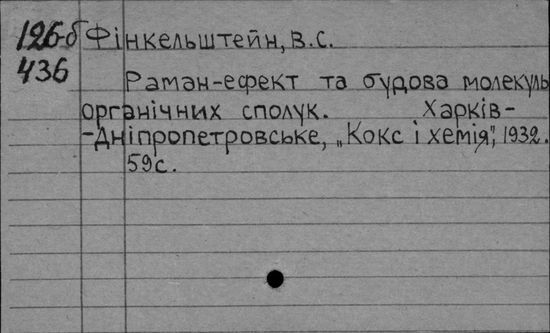 126-б Фінкельштейн, В.С.
436
Раман-ефект та будова молекуль
органічних сполук. Харків-
-Дніпропетровське, „Кокс і хемія", 1932.
59с.